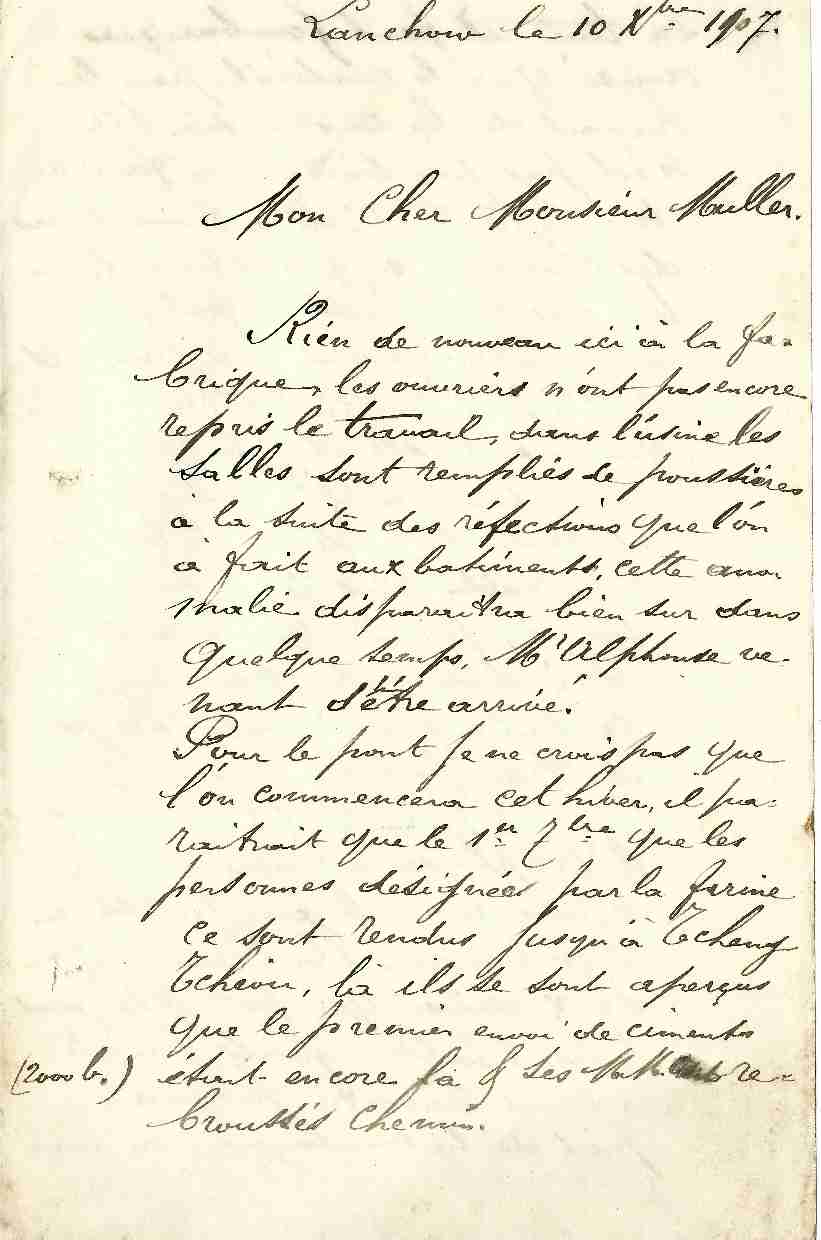 Lanchow le 10 Xbre 1907.
Mon Cher Monsieur Muller.
Rién de nouveau ici à la fa-
brique, les ouvriérs n'ont pas encore
repris le travail, dans l'úsine les
salles sont rempliés de poussiéres
à la suite des réfections que l'ón
à fait aux batiments, cette ano-
malié disparaitra bien sur dans
quelque temps, Mr Alphonse ve-
nant d'être arrivé.
Pour le pont je ne crois pas que
l'ón commencera cet hiver, il pa-
raitrait que le 1er 7bre que les
personnes désignées par la
ce sont rendus jusqu'à Tcheng
Tcheou, là ils se sont aperçus
que le premier envoi de ciments
(2000 b.) était encore là & ses M.M. re-
broussés chemin.